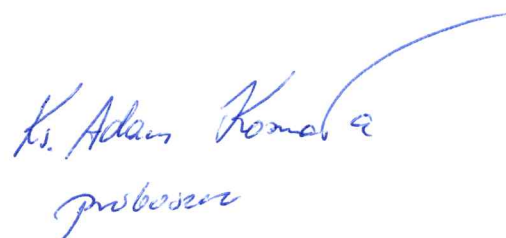 Ks. Adam Kosmała
proboszcz